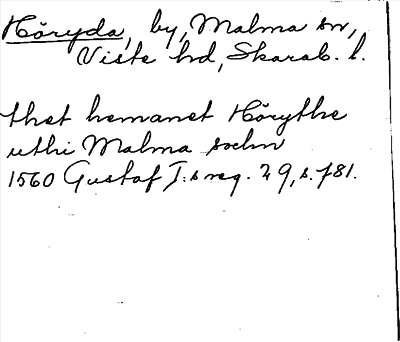 Höryda, by, Malma sn,
Viste hd, Skarab. l.
thet hemanet Hörythe
uthi Malma sochn
1560 Gustaf I:s reg. 29, s. 781.